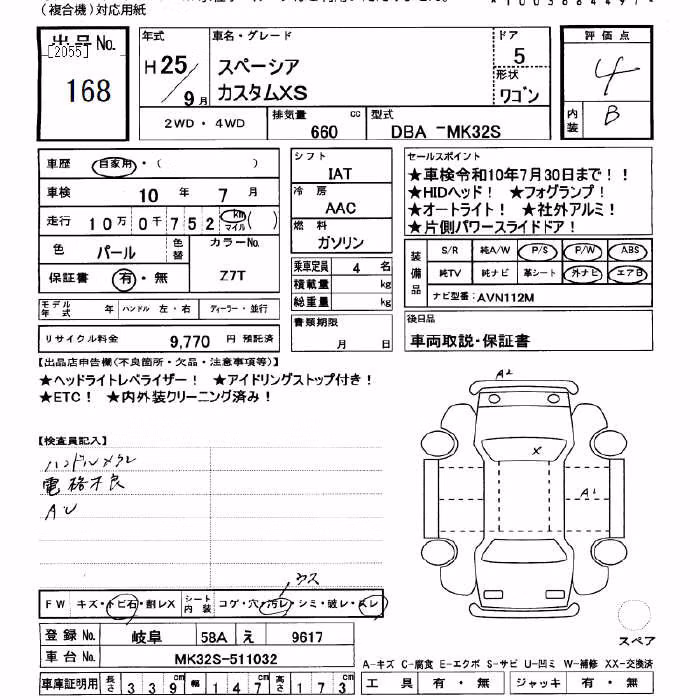 (複合機)対応用紙
出品No.
[2055]
168
年式
H25/9月
車名・グレード
スペーシア
カスタムXS
ドア
5
形状
ワゴン
2WD・4WD
排気量
660 cc
型式
DBA -MK32S
評価点
4
内装
B
車歴 自家用・( )
車検 10年 7月
走行 10万0千752 km マイル( )
色 パール 色替
カラーNo.
Z7T
保証書 有・無
モデル年式 年 ハンドル 左・右 ディーラー・並行
リサイクル料金 9,770 円 預託済
シフト
IAT
冷房
AAC
燃料
ガソリン
乗車定員 4 名
積載量 kg
総重量 kg
書類期限
月 日
セールスポイント
★車検令和10年7月30日まで!!
★HIDヘッド! ★フォグランプ!
★オートライト! ★社外アルミ!
★片側パワースライドドア!
装備品
S/R 純A/W P/S P/W ABS
純TV 純ナビ 革シート 外ナビ エアB
ナビ型番:AVN112M
後日品
車両取説・保証書
【出品店申告欄(不良箇所・欠品・注意事項等)】
★ヘッドライトレベライザー! ★アイドリングストップ付き!
★ETC! ★内外装クリーニング済み!
【検査員記入】
ハンドルメクレ
電格不良
AU
A2
X
A1
ウス
FW キズ・トビ石・割レX シート内装 コゲ・穴・汚レ・シミ・破レ・スレ
登録No. 岐阜 58A え 9617
車台No. MK32S-511032
車庫証明用 長さ 339cm 幅 147cm 高さ 173cm
スペア
A-キズ C-腐食 E-エクボ S-サビ U-凹ミ W-補修 XX-交換済
工具 有・無 ジャッキ 有・無